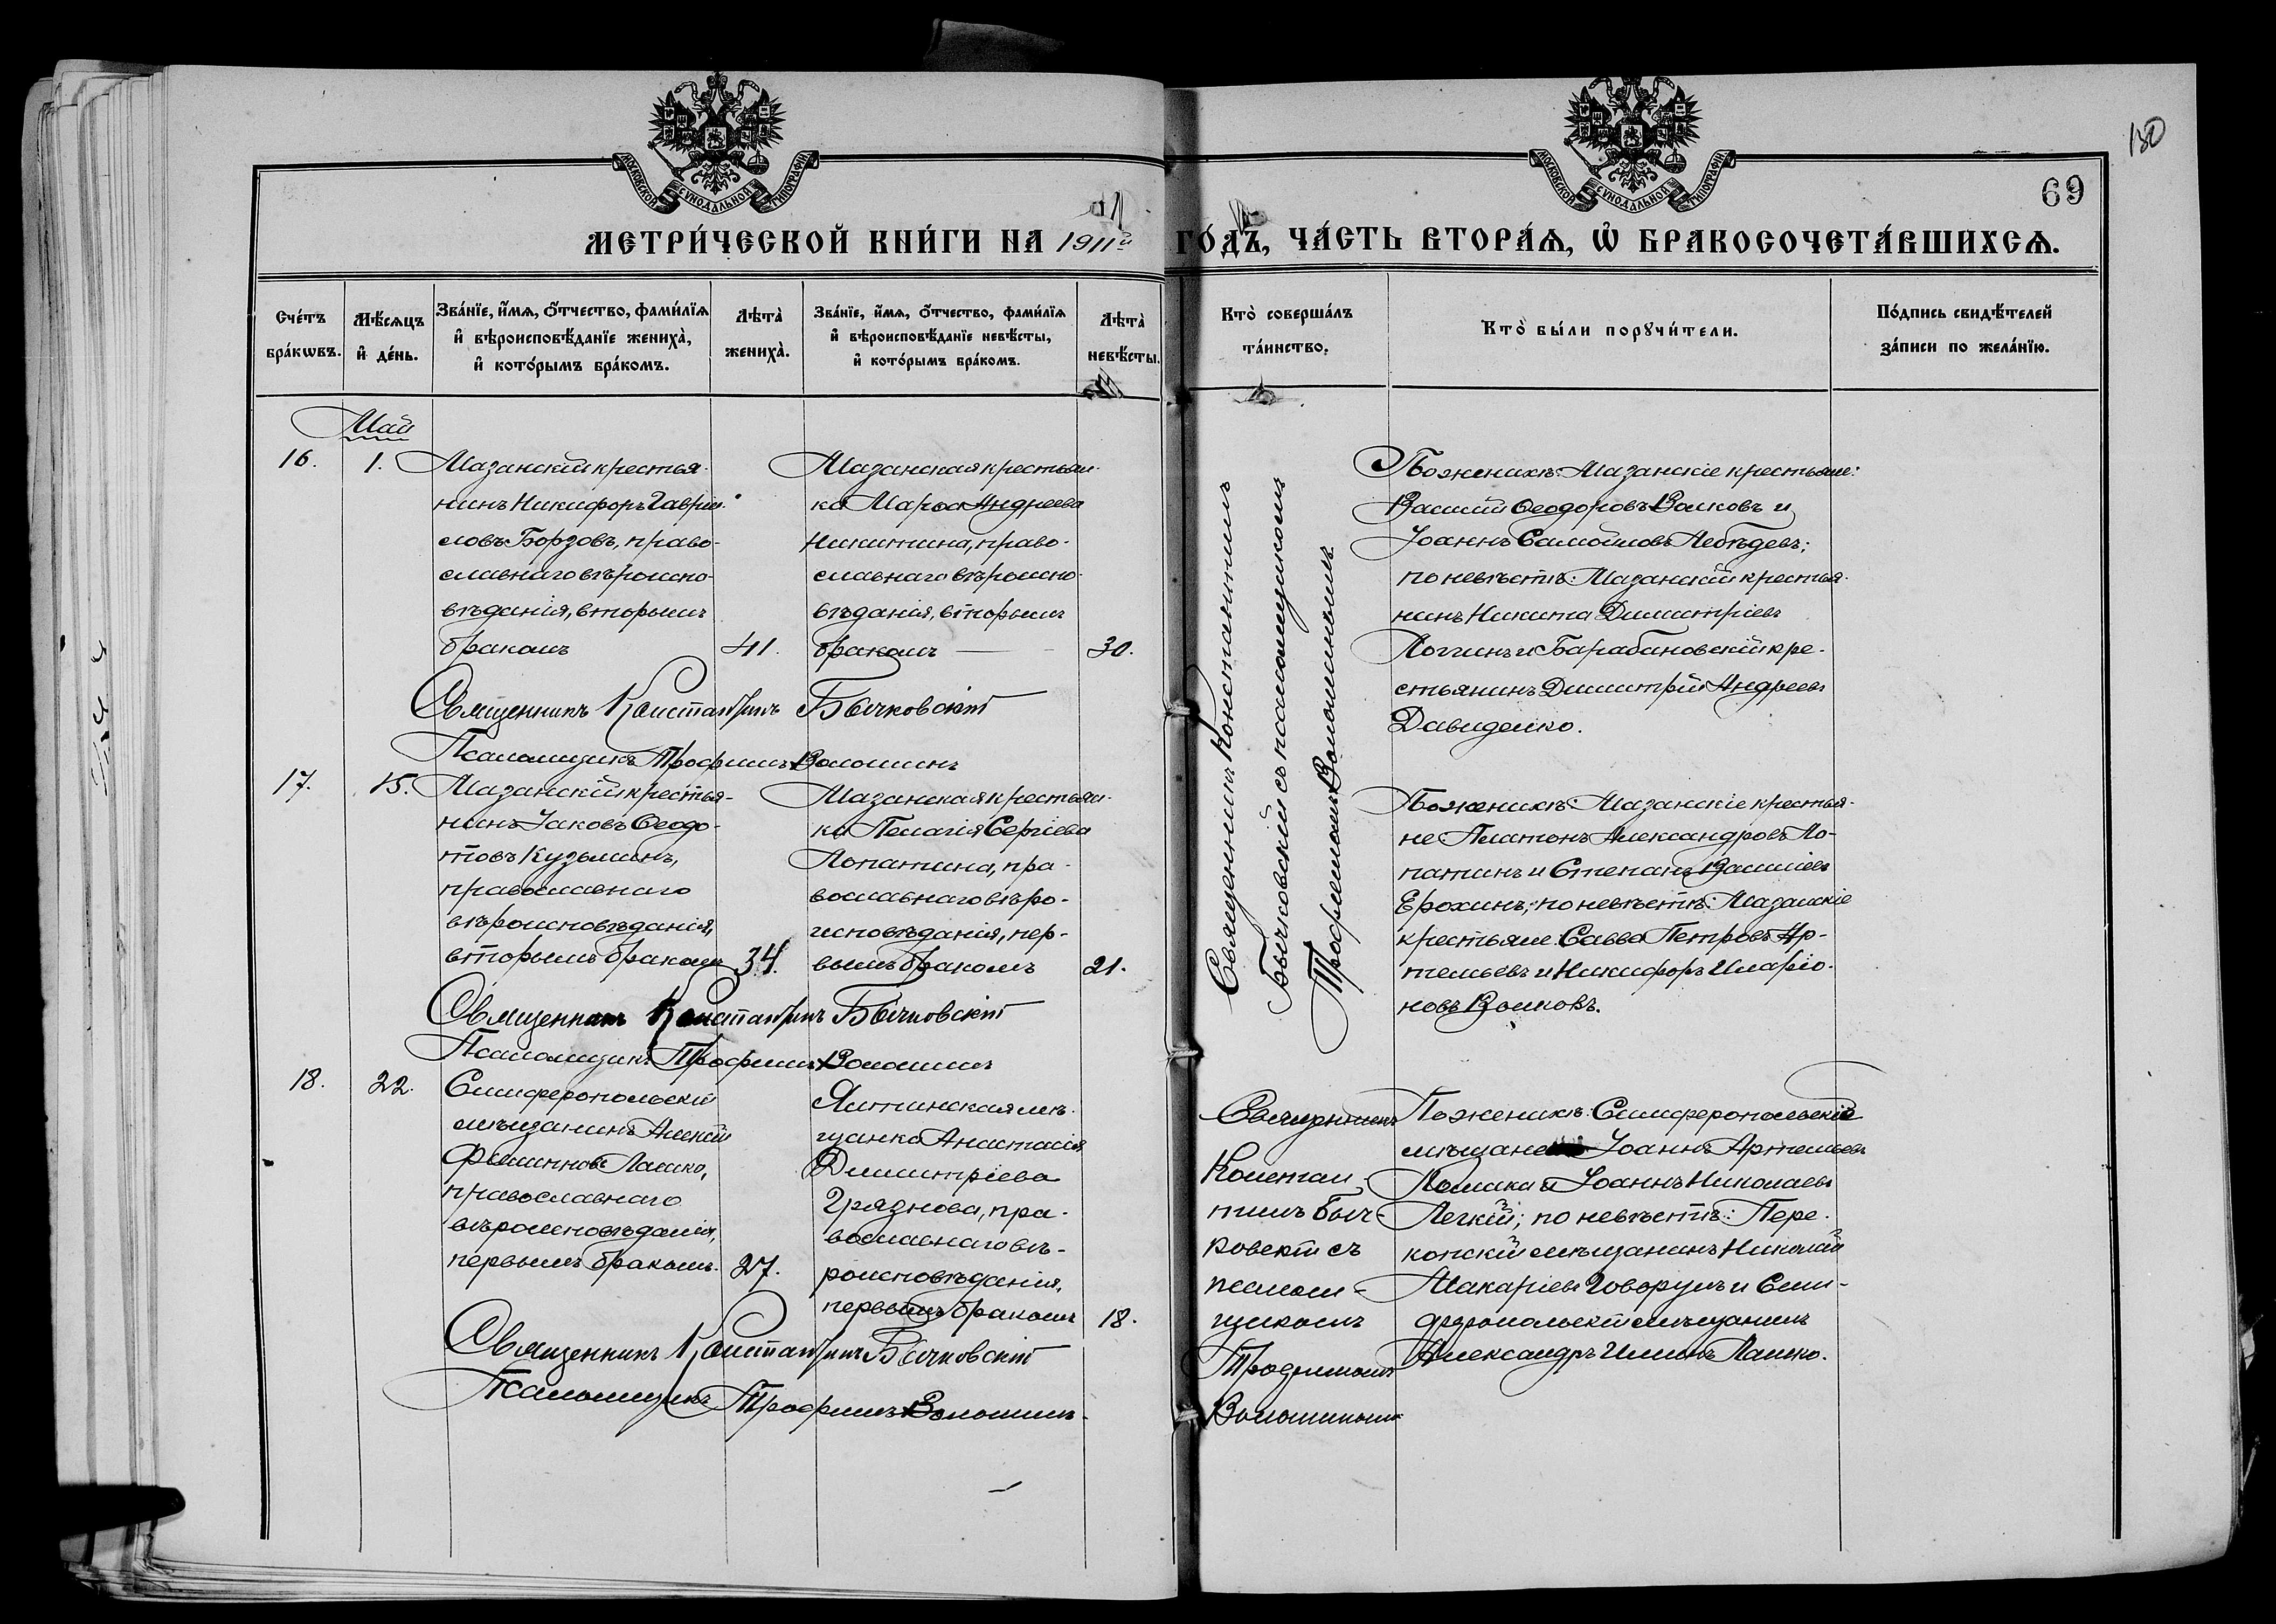 130
69
МОСКОВСКОЙ СѴНОДАЛЬНОЙ ТИПОГРАФІИ
МОСКОВСКОЙ СѴНОДАЛЬНОЙ ТИПОГРАФІИ
МЕТРИ́ЧЕСКОЙ КНИ́ГИ НА 1911й ГО́ДЪ, ЧА́СТЬ ВТОРА́Ѧ, Ѽ БРАКОСОЧЕТА́ВШИХСѦ.
Сче́тъ бра́кѡвъ.
Мѣ́сѧцъ и҆ де́нь.
Зва́нїе, и҆́мѧ, ѻ҆́тчество, фами́лїѧ
и҆ вѣроисповѣ́данїе жениха̀,
и҆ кото́рымъ бра́комъ.
Лѣта̀ жениха̀.
Зва́нїе, и҆́мѧ, ѻ҆́тчество, фами́лїѧ
и҆ вѣроисповѣ́данїе невѣ́сты,
и҆ кото́рымъ бра́комъ.
Лѣта̀ невѣ́сты.
Кто̀ соверша́лъ
та́инство.
Кто̀ бы́ли порꙋчи́тели.
По́дпись свидѣ́телей
за́писи по жела́нїю.
Май
16.
1.
Мазанскій крестья-
нинъ Никифоръ Гаврiи-
ловъ Борзовъ, право-
славнаго вѣроиспо-
вѣданія, вторымъ
бракомъ
41.
Мазанская крестьян-
ка Марѳа Андреева
Никитина, право-
славнаго вѣроиспо-
вѣданія, вторымъ
бракомъ
30.
Священникъ Константинъ
Бычковскій съ псаломщикомъ
Трофимомъ Волошинымъ
По женихѣ: Мазанскіе крестьяне:
Василій Ѳеодоровъ Волковъ и
Іоаннъ Самойловъ Лебѣдевъ;
по невѣстѣ: Мазанскій крестья-
нинъ Никита Димитріевъ
Логгинъ и Барабановскій кре-
стьянинъ Димитрій Андреевъ
Давиденко.
Священникъ Константинъ Бычковскій
Псаломщикъ Трофимъ Волошинъ
17.
15.
Мазанскій крестья-
нинъ Іаковъ Ѳеодо-
товъ Кузьминъ,
православнаго
вѣроисповѣданія,
вторымъ бракомъ
34.
Мазанская крестьян-
ка Пелагія Сергіева
Лопатина, пра-
вославнаго вѣро-
исповѣданія, пер-
вымъ бракомъ
21.
По женихѣ: Мазанскіе крестья-
не: Платонъ Александровъ Ло-
патинъ и Степанъ Василіевъ
Ерохинъ; по невѣстѣ: Мазанскіе
крестьяне: Савва Петровъ Ар-
темьевъ и Никифоръ Иларіо-
новъ Волковъ.
Священникъ Константинъ Бычковскій
Псаломщикъ Трофимъ Волошинъ
18.
22.
Симферопольскій
мѣщанинъ Алексій
Филипповъ Лашко,
православнаго
вѣроисповѣданія,
первымъ бракомъ.
27.
Ялтинская мѣ-
щанка Анастасія
Димитріева
Грязнова, пра-
вославнаго вѣ-
роисповѣданія,
первымъ бракомъ
18.
Священникъ
Констан-
тинъ Быч-
ковскій съ
псалом-
щикомъ
Трофимомъ
Волошинымъ
По женихѣ: Симферопольскіе
мѣщане Іоаннъ Артемьевъ
и Іоаннъ Николаевъ
Легкій; по невѣстѣ: Пере-
копскій мѣщанинъ Николай
Макаріевъ Говорунъ и Сим-
феропольскій мѣщанинъ
Александръ Ильинъ Лашко.
Священникъ Константинъ Бычковскій
Псаломщикъ Трофимъ Волошинъ.